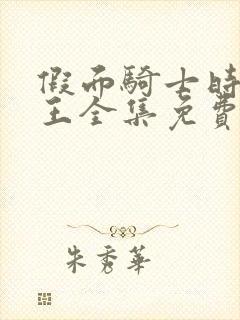 假面騎士時
王全集免費
朱秀華